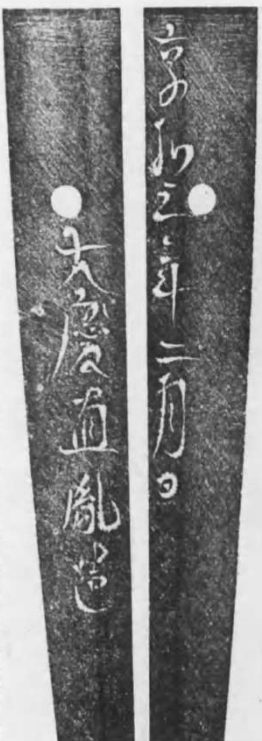 享和三年二月日
大慶直胤造